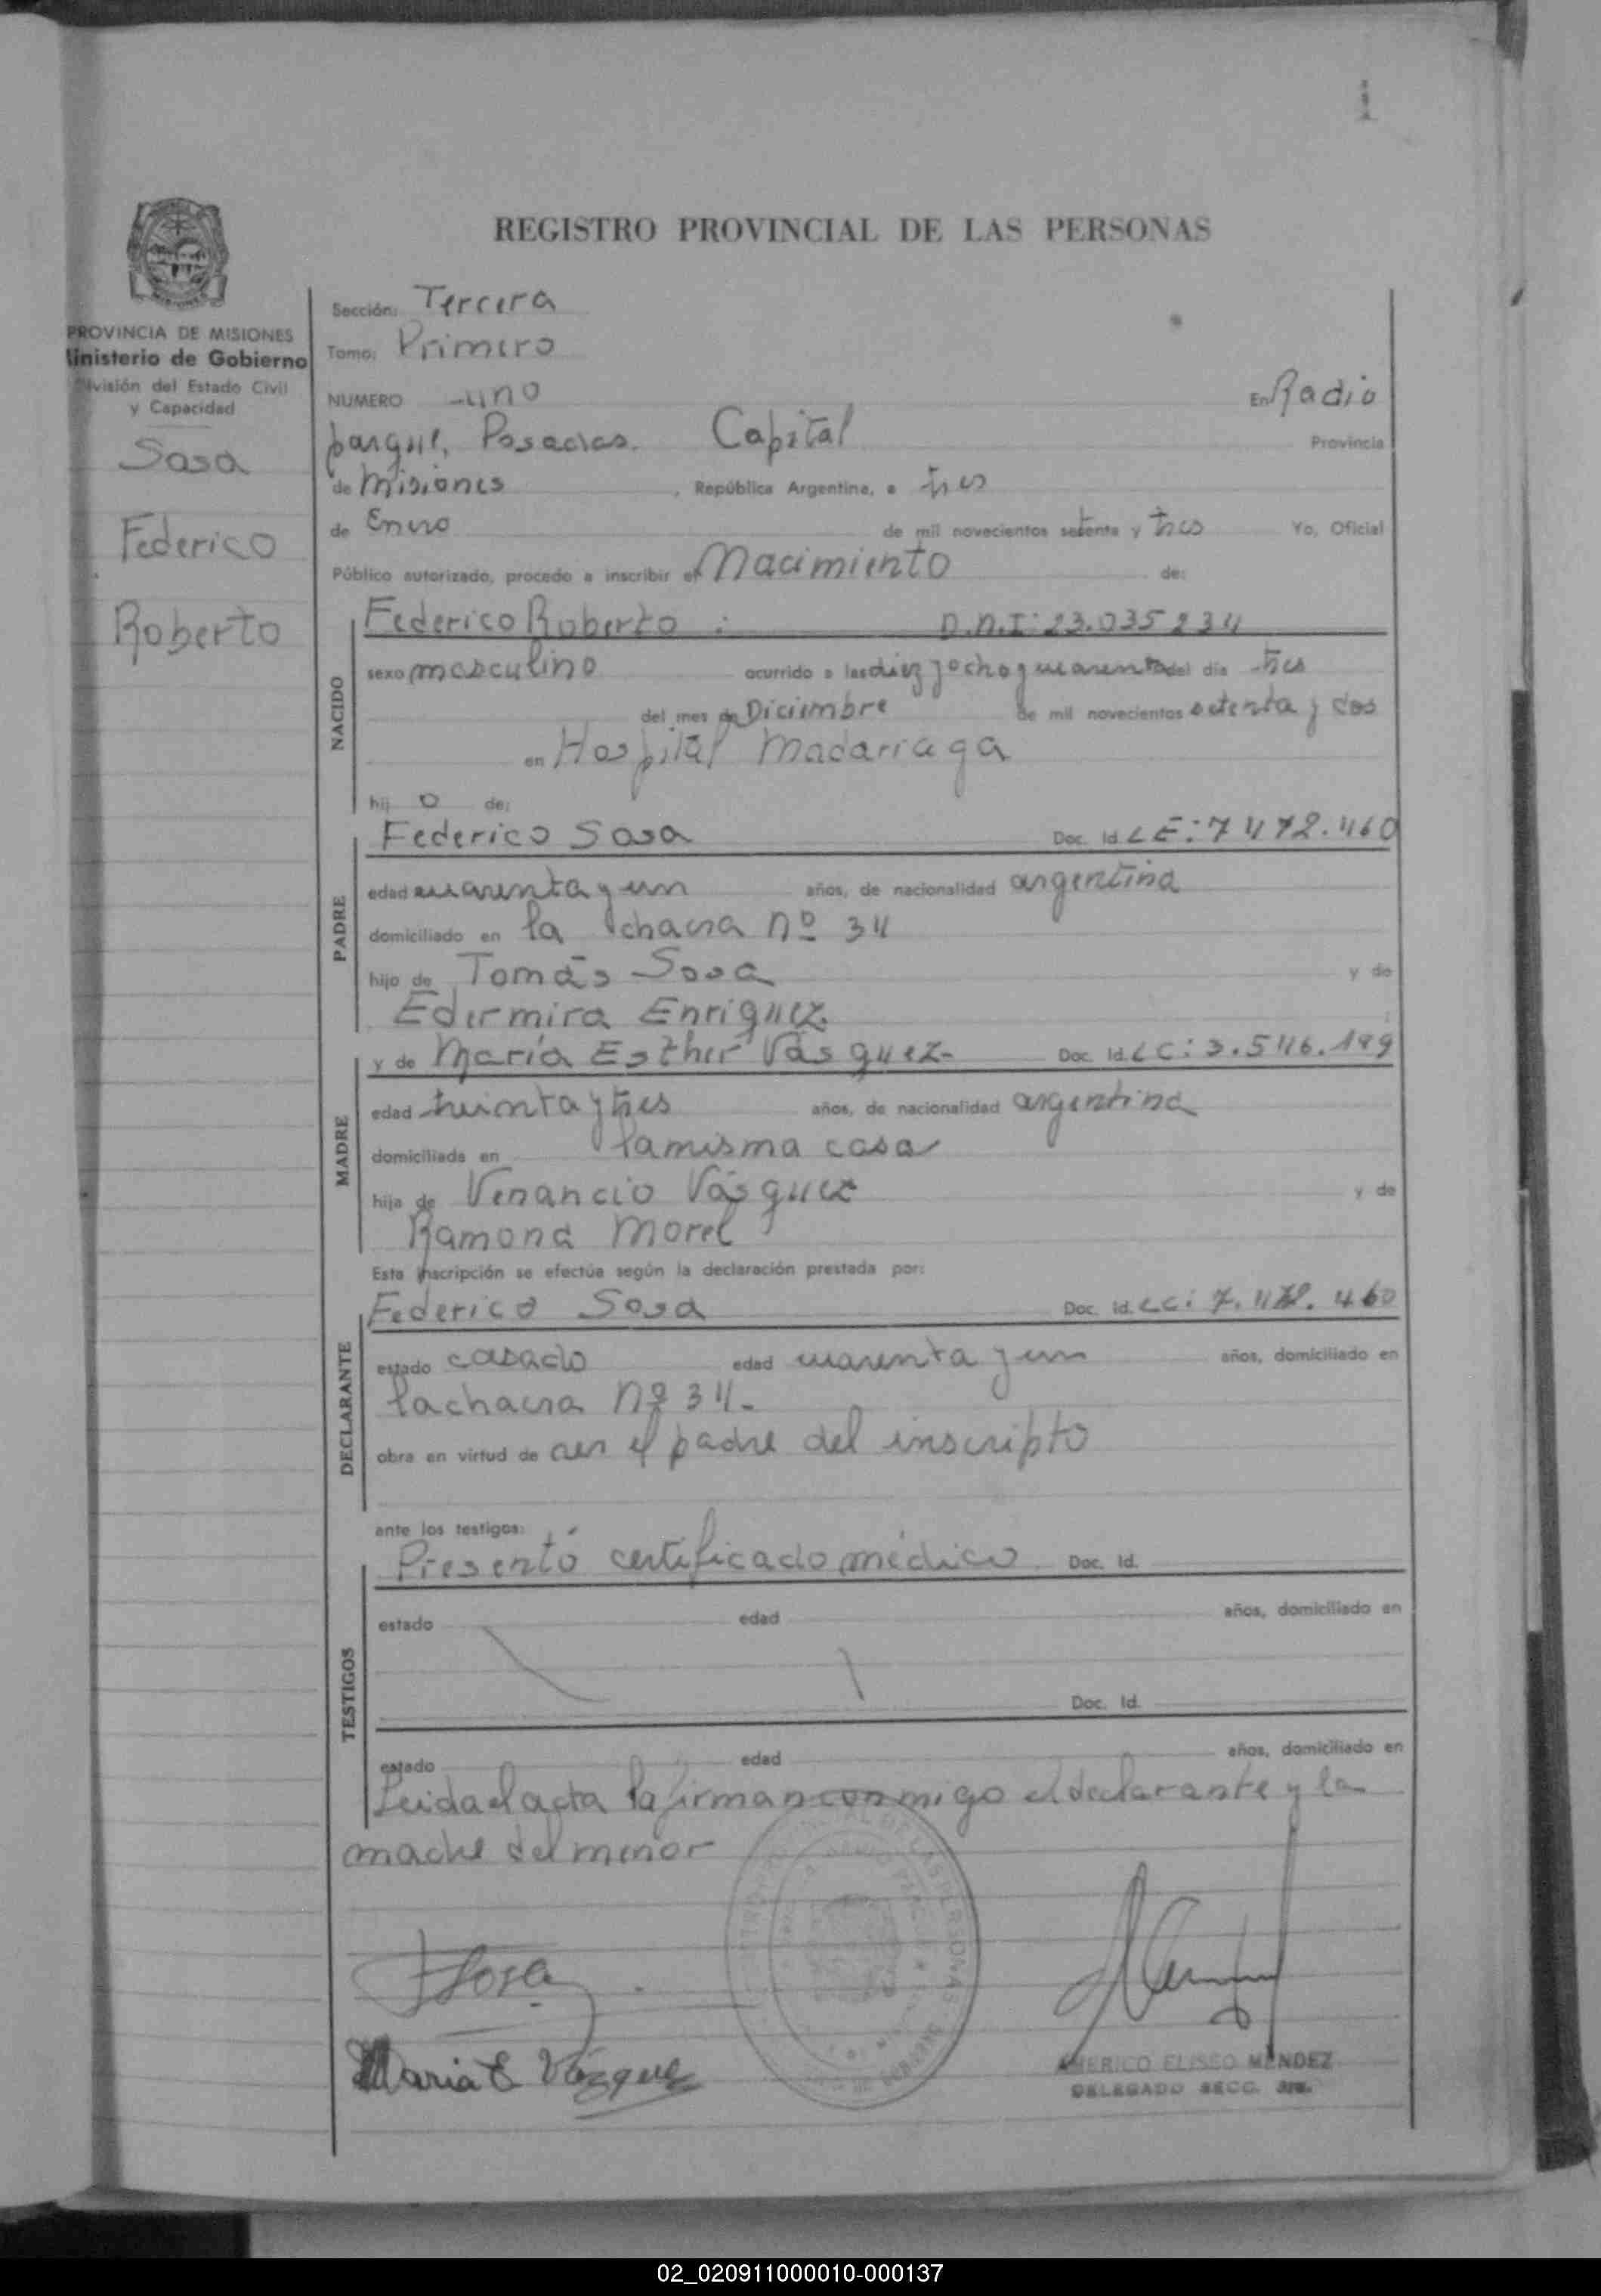 1
REGISTRO PROVINCIAL DE LAS PERSONAS
PROVINCIA DE MISIONES
Ministerio de Gobierno
División del Estado Civil
y Capacidad
Sosa
Federico
Roberto
Sección: Tercera
Tomo: Primero
NUMERO -uno En Radio
parque, Posadas. Capital Provincia
de Misiones, República Argentina, a tres
de Enero de mil novecientos setenta y tres Yo, Oficial
Público autorizado, procedo a inscribir el Nacimiento de:
Federico Roberto : D.N.I: 23.035234
NACIDO
sexo masculino ocurrido a las diez y ocho y cuarenta del día tres
del mes de Diciembre de mil novecientos setenta y dos
en Hospital Madariaga
hij o de:
Federico Sosa Doc. Id. LE: 7472.460
PADRE
edad cuarenta y un años, de nacionalidad argentina
domiciliado en la chacra nº 34
hijo de Tomás Sosa y de
Edermira Enriquez.
y de María Esther Vásquez- Doc. Id. LC: 3.546.199
MADRE
edad treinta y tres años, de nacionalidad argentina
domiciliada en la misma casa
hija de Venancio Vásquez y de
Ramona Morel
Esta inscripción se efectúa según la declaración prestada por:
Federico Sosa Doc. Id. LC: 7.472.460
DECLARANTE
estado casado edad cuarenta y un años, domiciliado en
la chacra Nº 34-
obra en virtud de ser el padre del inscripto
ante los testigos:
Presentó certificado médico Doc. Id.
TESTIGOS
estado edad años, domiciliado en
Doc. Id.
estado edad años, domiciliado en
Leida el acta la firman conmigo el declarante y la
madre del menor
FSosa
Maria E Vázquez
AMERICO ELISEO MENDEZ
DELEGADO SECC. 3ra.
02_020911000010-000137